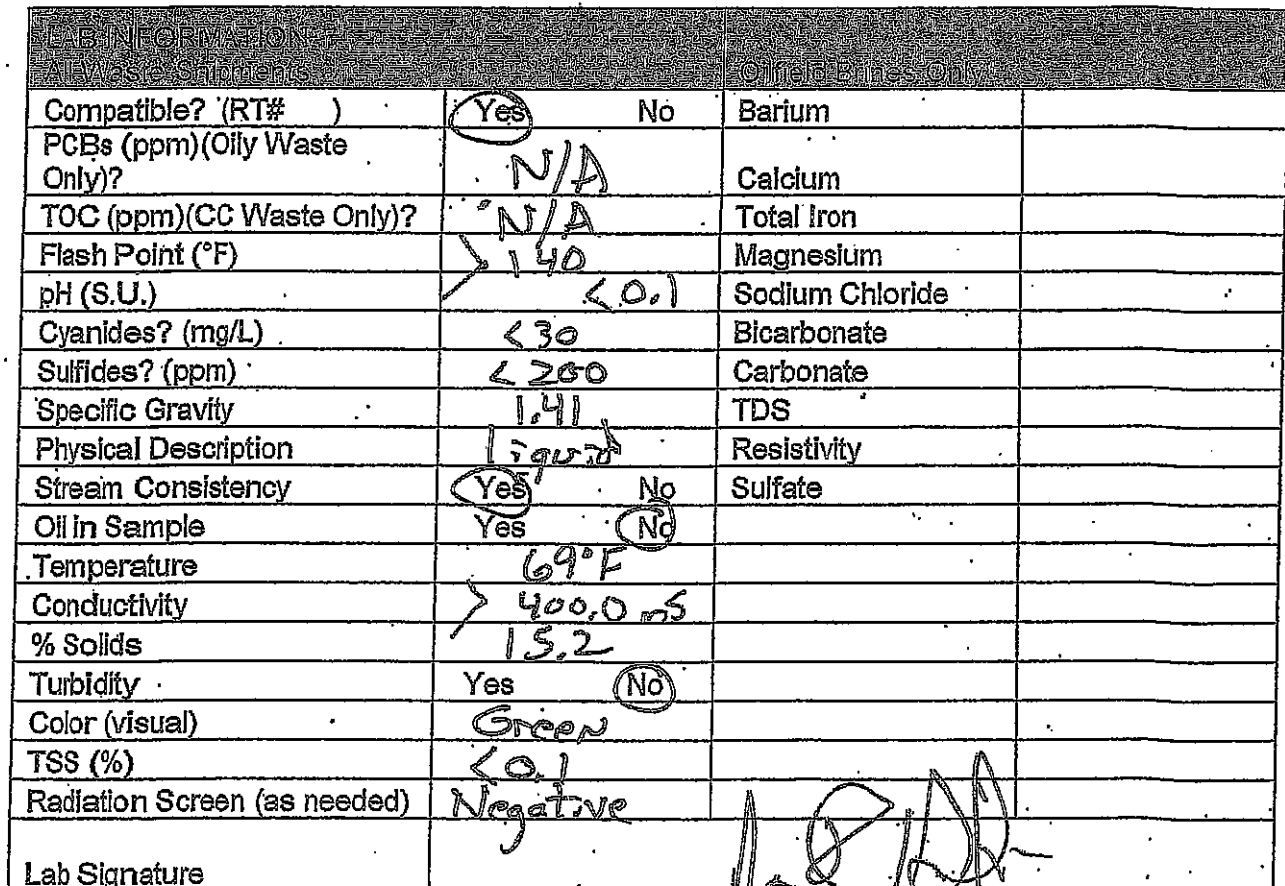 LAB INFORMATION
All Waste Shipments Oilfield Brines Only
Compatible? (RT# ) Yes No Barium
PCBs (ppm)(Oily Waste
Only)? N/A Calcium
TOC (ppm)(CC Waste Only)? N/A Total Iron
Flash Point (°F) >140 Magnesium
pH (S.U.) <0.1 Sodium Chloride
Cyanides? (mg/L) <30 Bicarbonate
Sulfides? (ppm) <200 Carbonate
Specific Gravity 1.41 TDS
Physical Description liquid Resistivity
Stream Consistency Yes No Sulfate
Oil in Sample Yes No
Temperature 69°F
Conductivity >400.0 mS
% Solids 15.2
Turbidity Yes No
Color (visual) Green
TSS (%) <0.1
Radiation Screen (as needed) Negative
Lab Signature